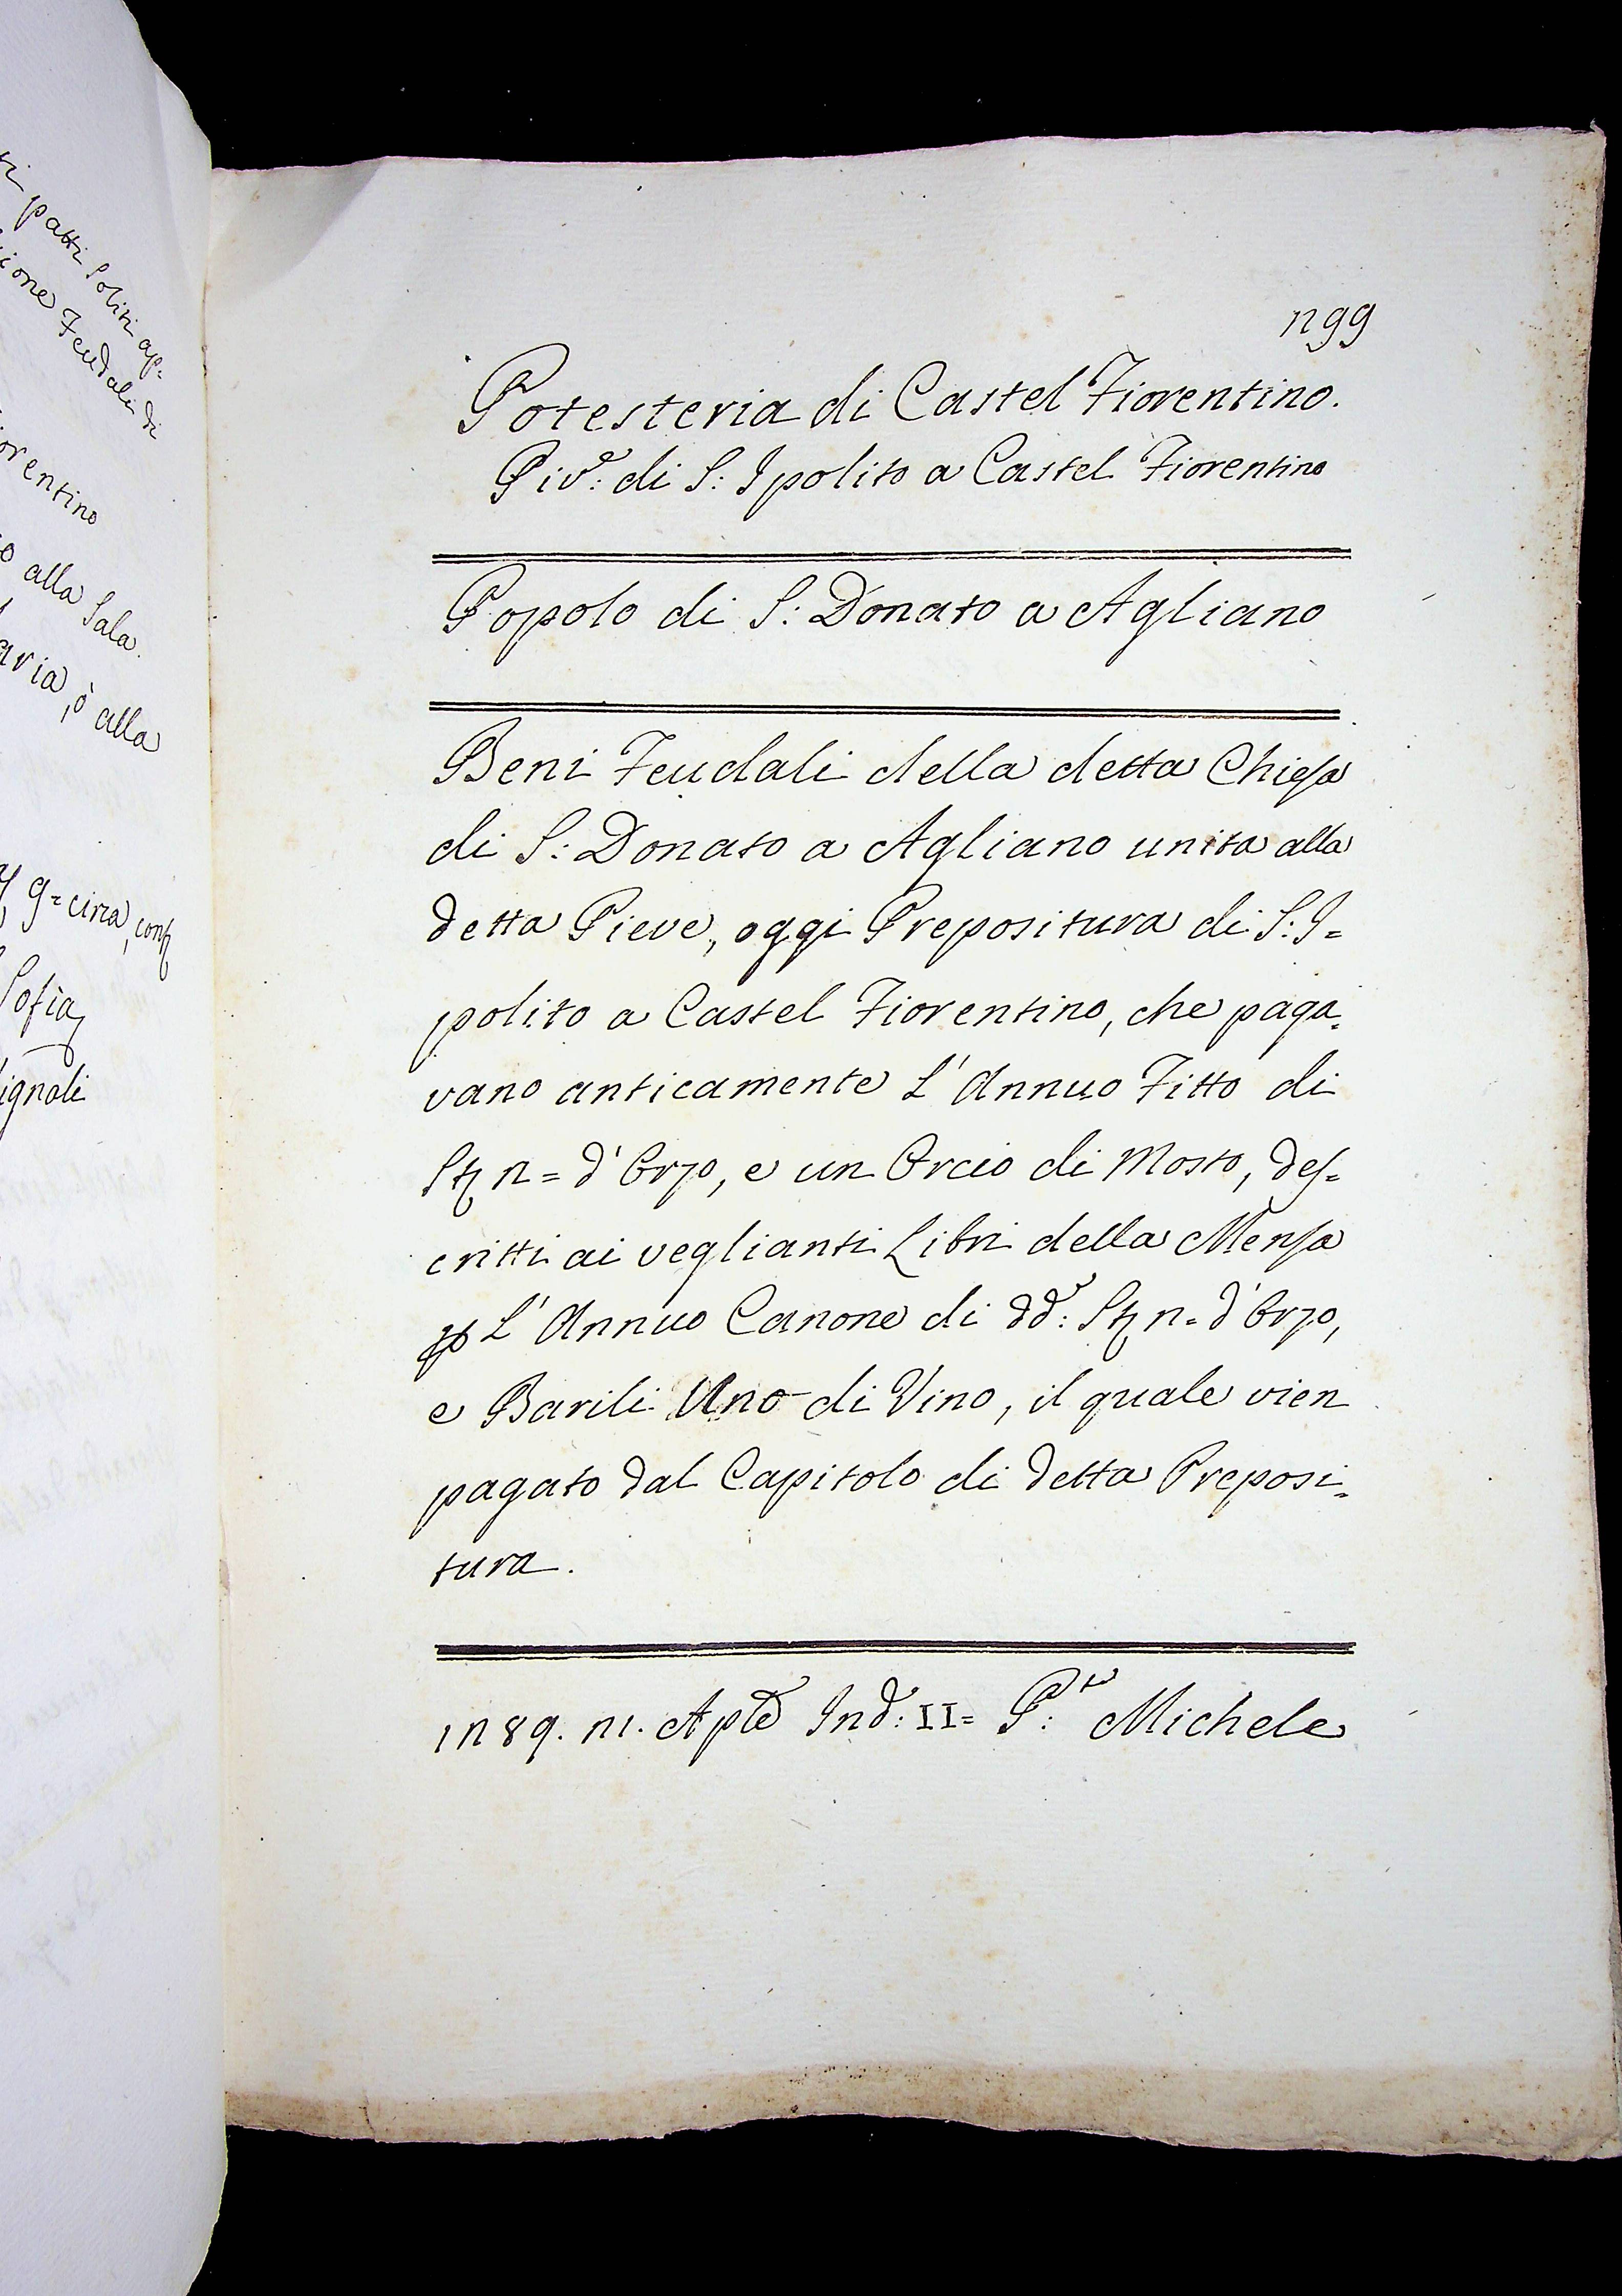 patti soliti ap=
ione Feudali di
orentino
alla Sala.
aria, ò alla
9= circa, conf
Sofia
ignoli
299
Potesteria di Castel Fiorentino.
Piv.e: di S: Ipolito a Castel Fiorentino
Popolo di S: Donato a Agliano
Beni Feudali della detta Chiesa
di S: Donato a Agliano unita alla
detta Pieve, oggi Prepositura di S: I=
polito a Castel Fiorentino, che paga=
vano anticamente L'Annuo Fitto di
St 2= d'Orzo, e un Orcio di Mosto, des=
critti ai veglianti Libri della Mensa
p L'Annuo Canone di dd: St 2= d'Orzo,
e Barili Uno di Vino, il quale vien
pagato dal Capitolo di detta Preposi=
tura.
1289. 21. Aple Ind: II= P:te Michele